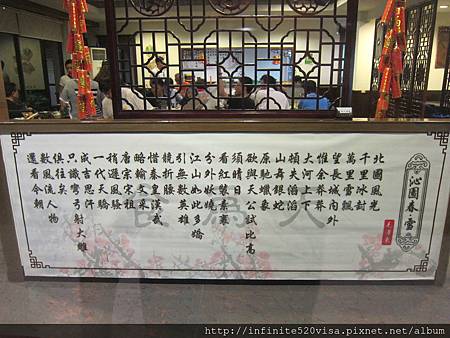 沁園春·雪
北國風光
千里冰封
萬里雪飄
望長城內外
惟余莽莽
大河上下
頓失滔滔
山舞銀蛇
原馳蠟象
欲與天公試比高
須晴日
看紅裝素裹
分外妖嬈
江山如此多嬌
引無數英雄
競折腰
惜秦皇漢武
略輸文采
唐宗宋祖
稍遜風騷
一代天驕
成吉思汗
只識彎弓射大雕
俱往矣
數風流人物
還看今朝
http://infinite520visa.pixnet.net/album